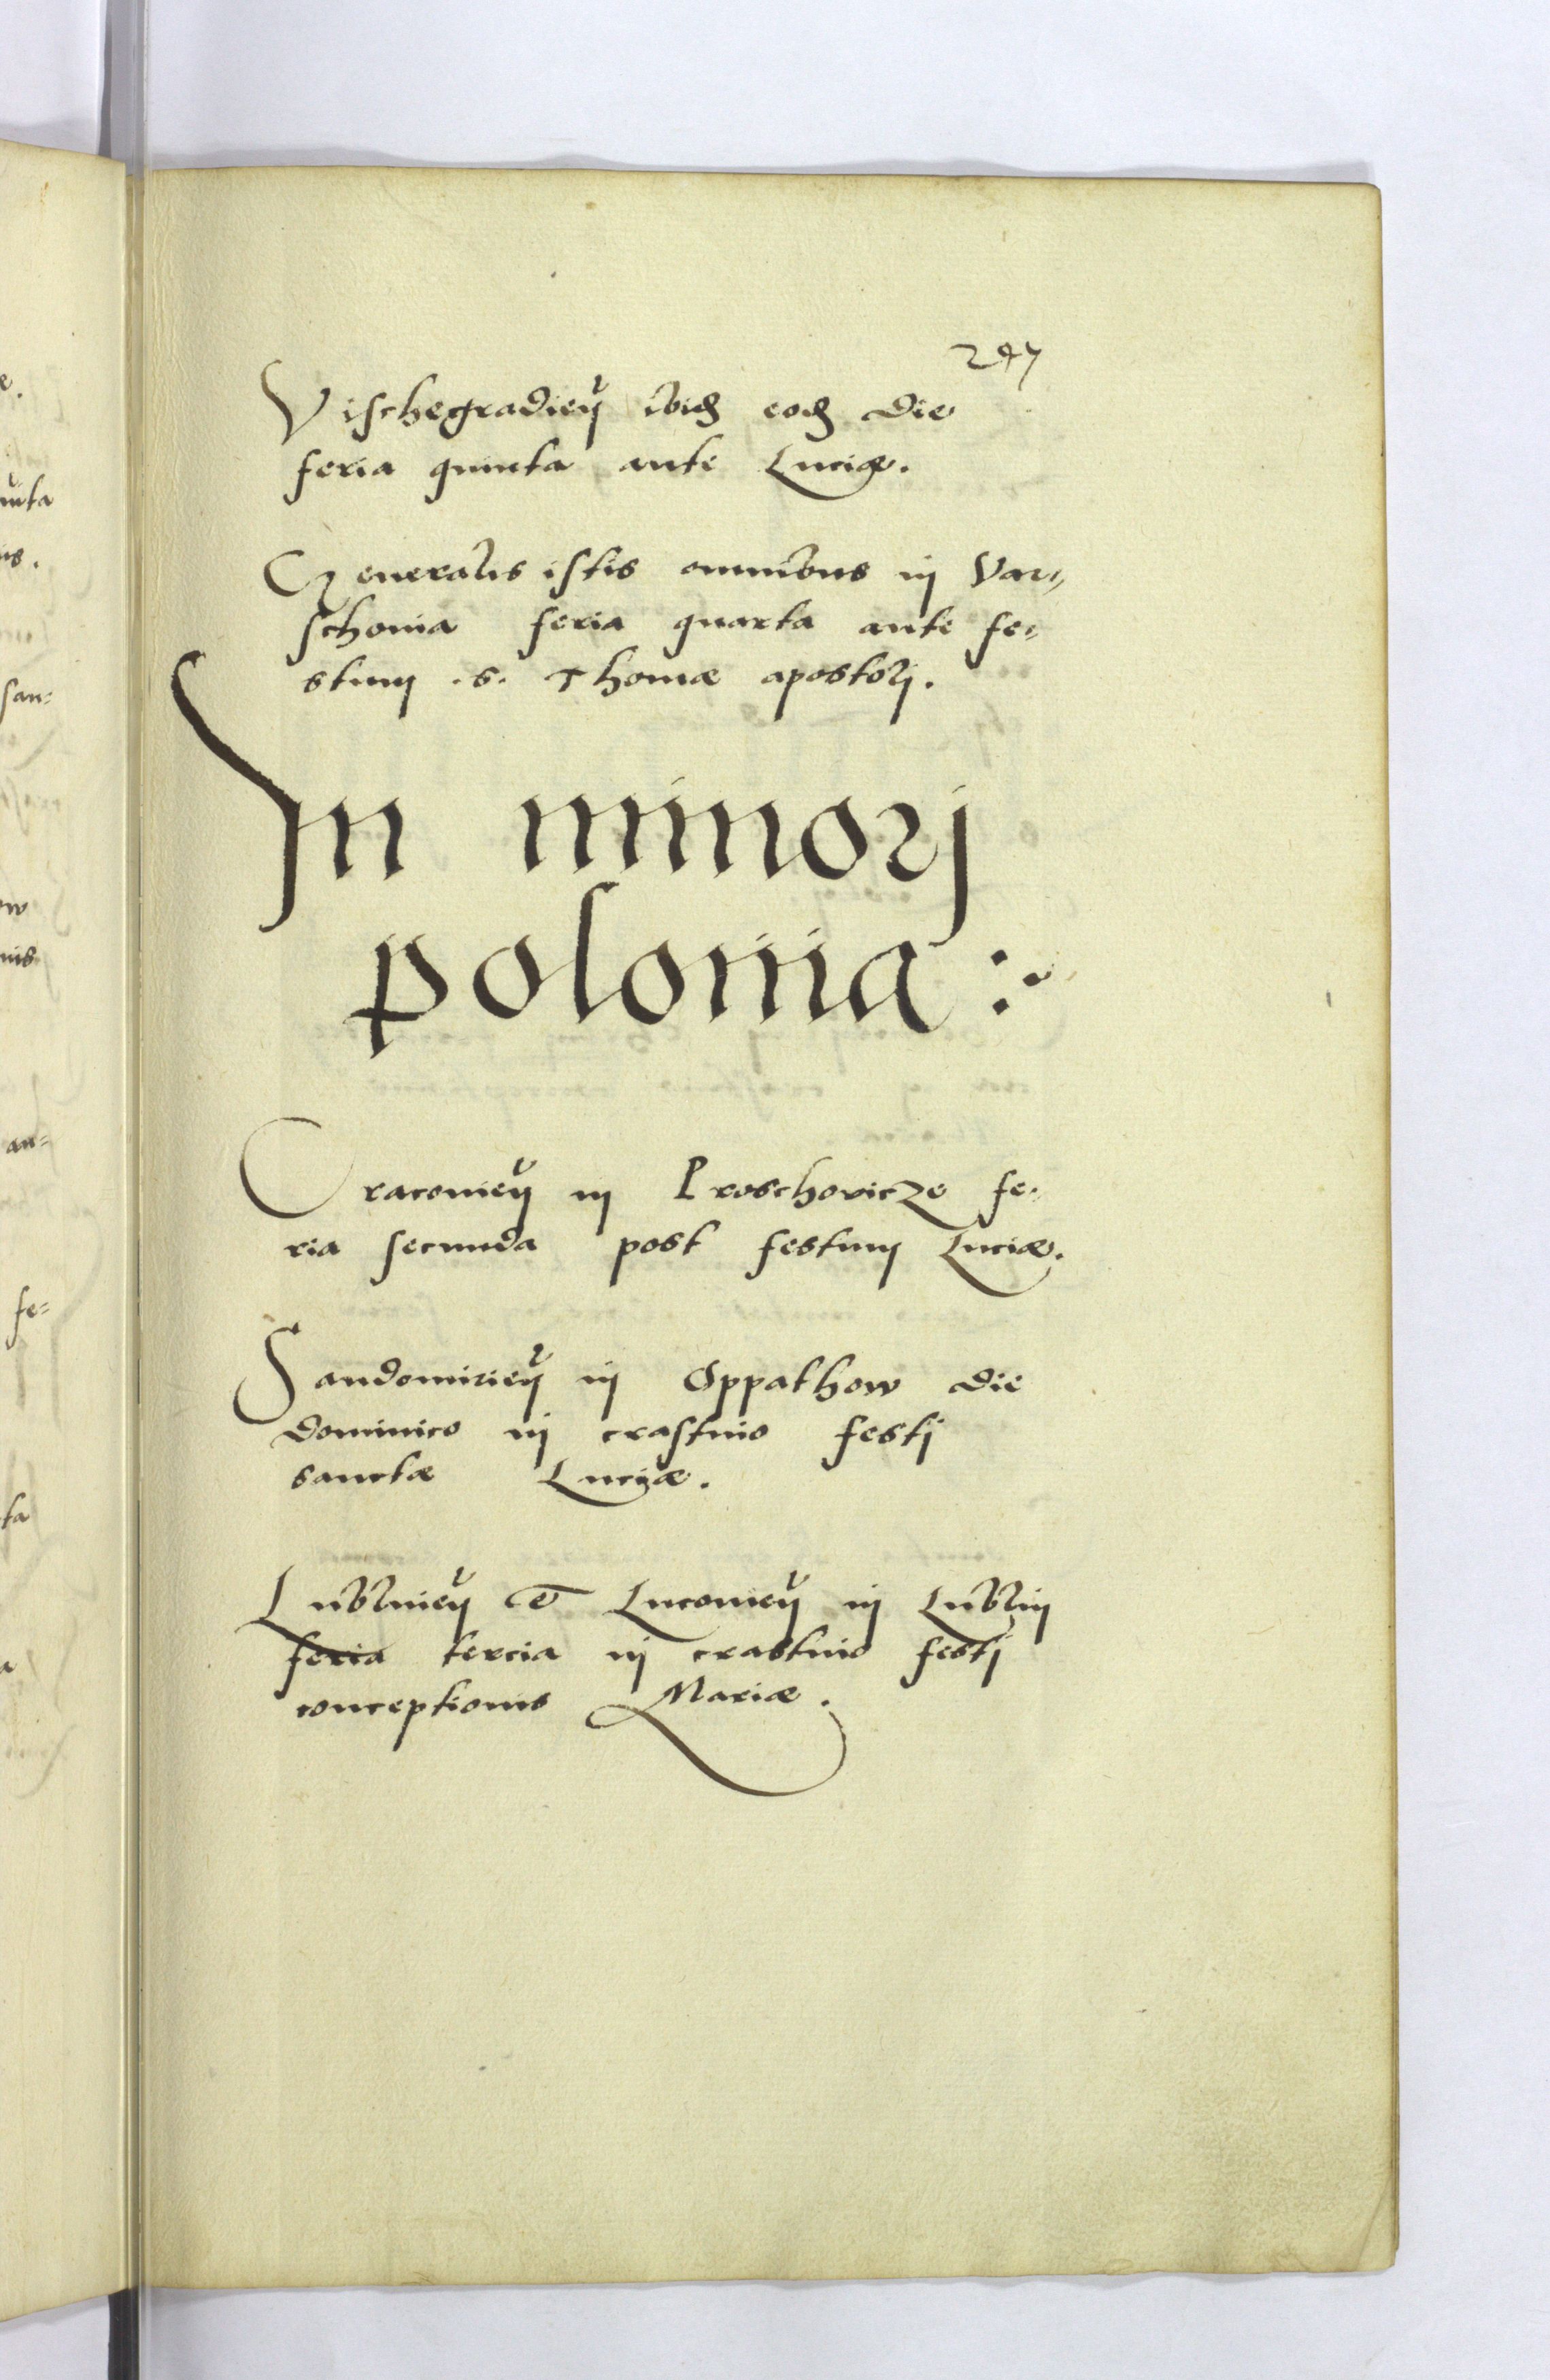 247
Vischegradien̄ ibidē eodē die
feria quinta ante Luciæ.
Generalis istis omnibus in Var=
schovia feria quarta ante fe=
stum .S. Thomæ apostolj.
In minorj
polonia :~
Cracovien̄ in Proschovicze fe=
ria secunda post festum Luciæ.
Sandomirien̄ in Oppathow die
dominico in crastino festj
sanctæ Luciæ.
Lublinien̄ et Lucovien̄ in Lublin
feria tercia in crastino festj
conceptionis Mariæ.